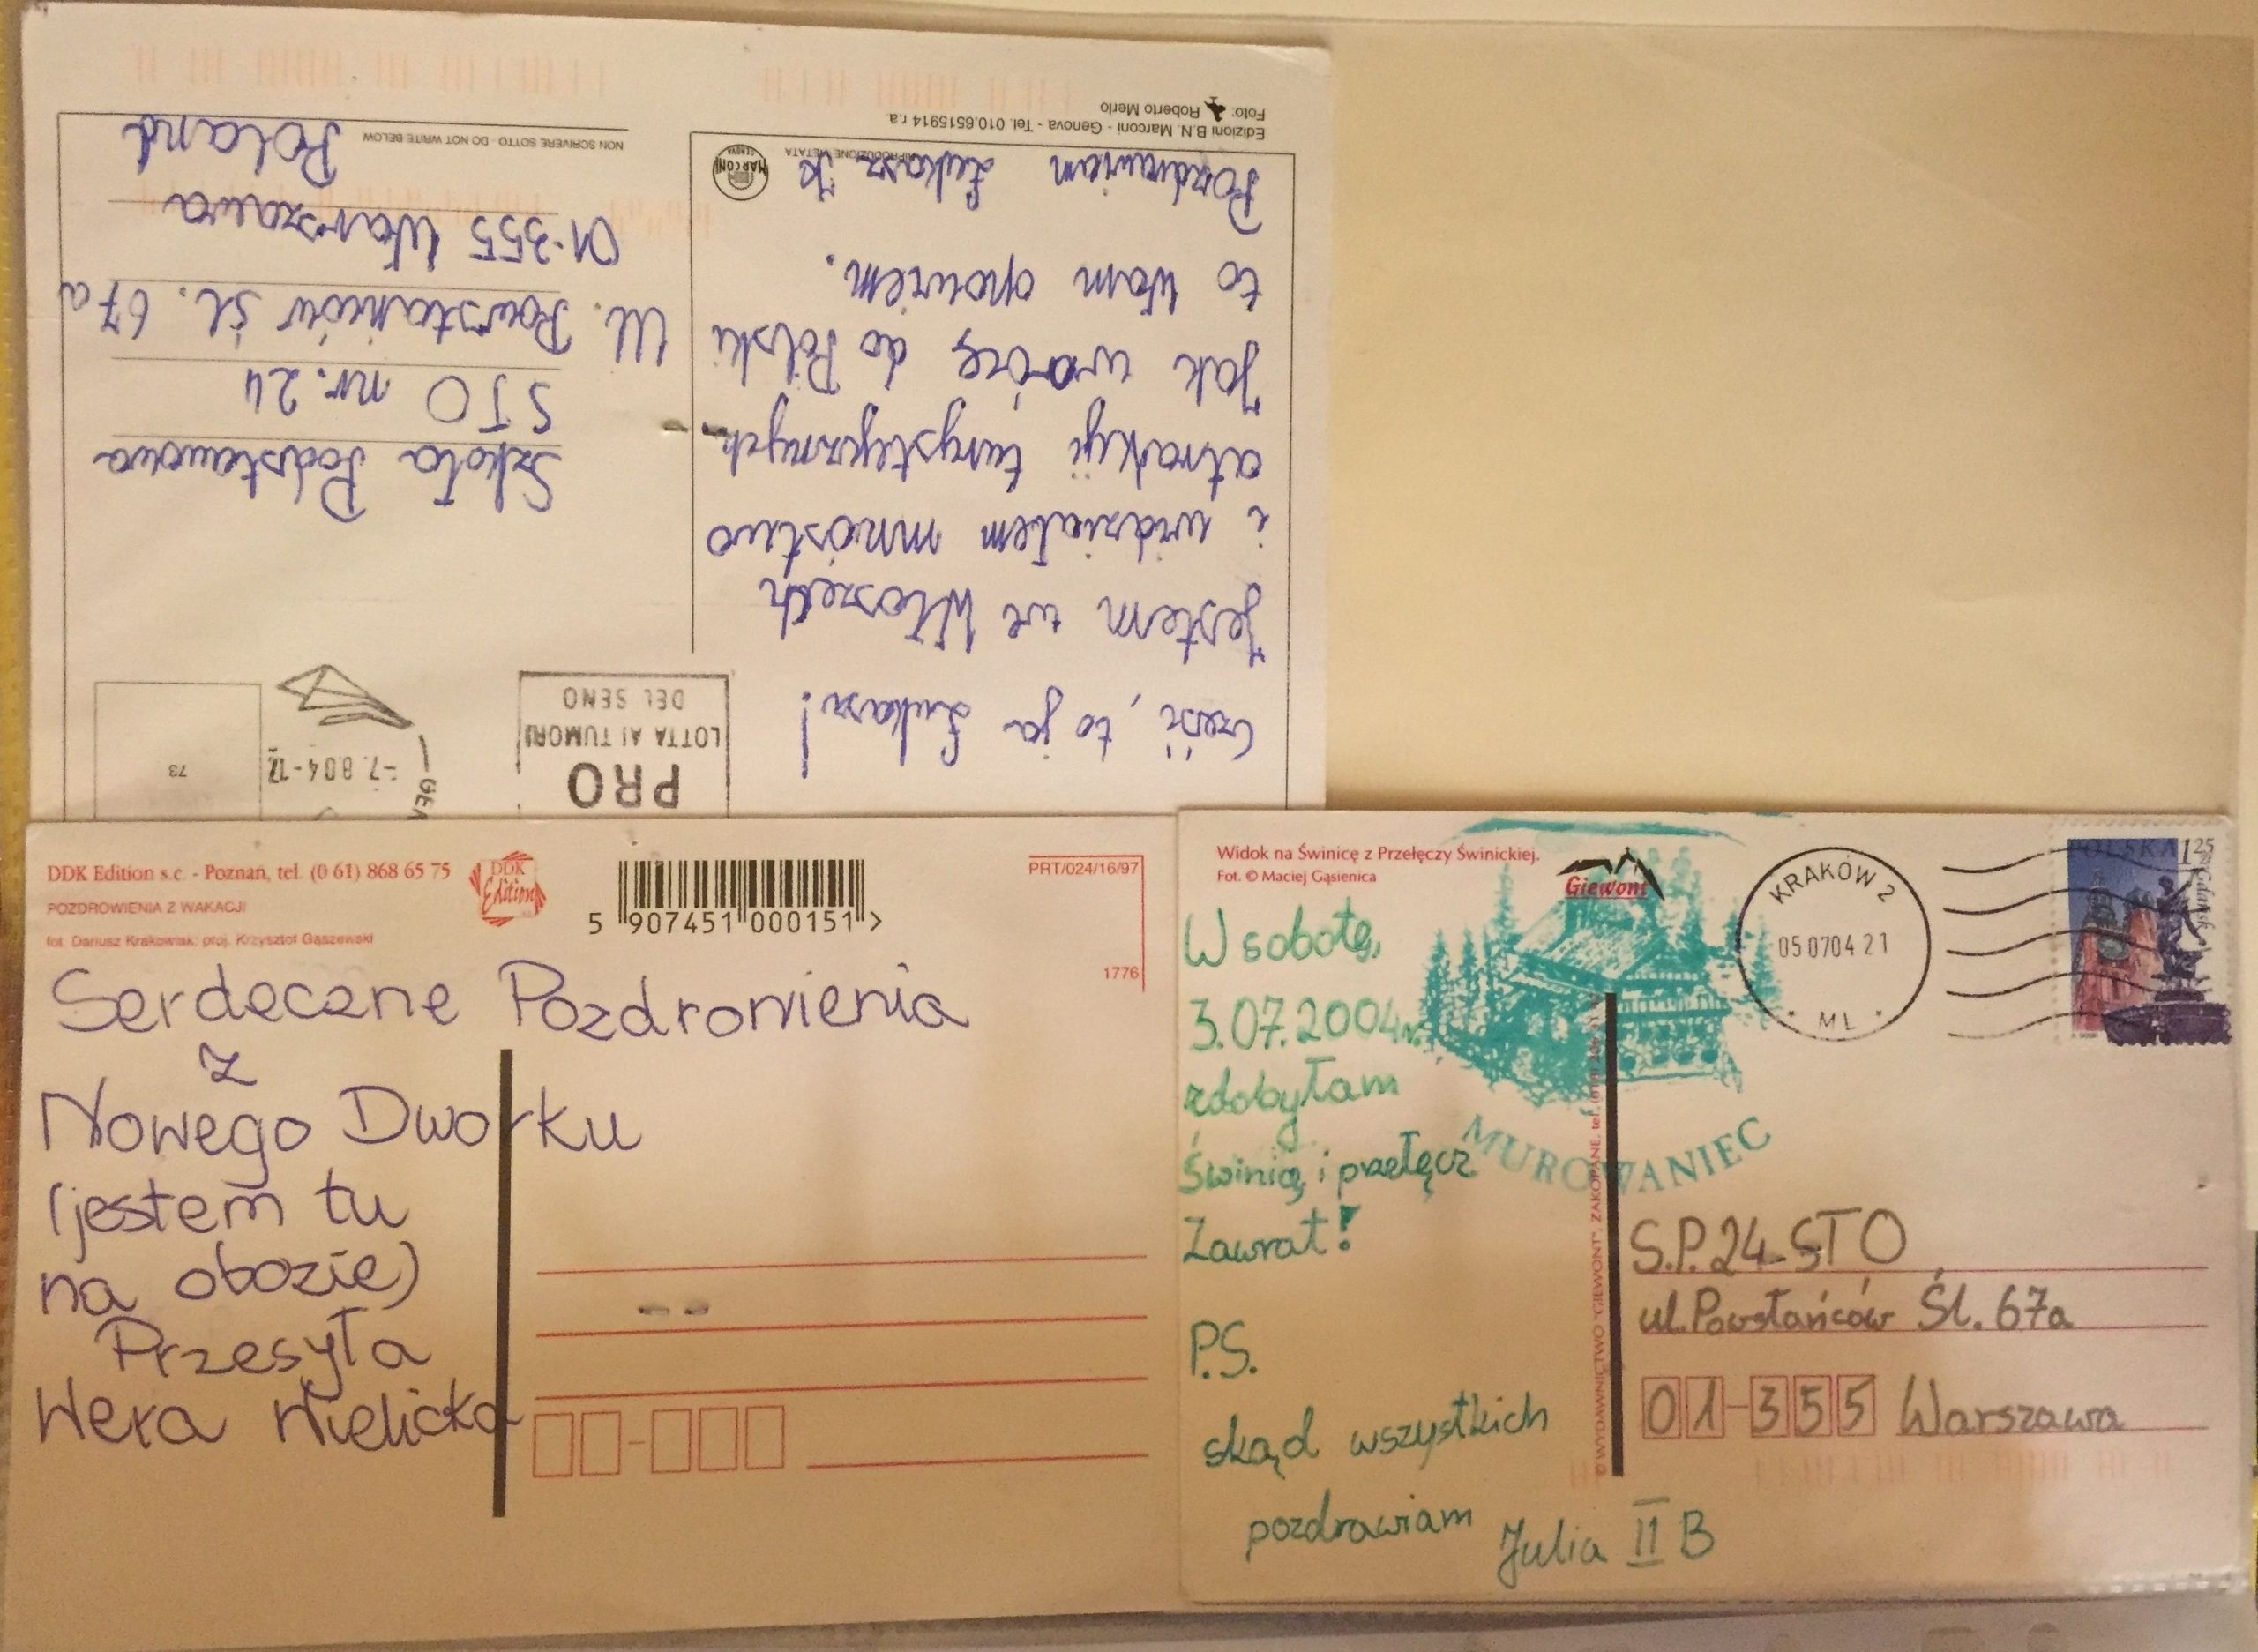 Edizioni B.N. Marconi - Genova - Tel. 010.6515914 r.a.
Foto: Roberto Merlo
RIPRODUZIONE VIETATA
MARCONI
GENOVA
NON SCRIVERE SOTTO - DO NOT WRITE BELOW
Cześć, to ja Łukasz!
Jestem we Włoszech
i widziałem mnóstwo
atrakcji turystycznych.
Jak wrócę do Polski
to Wam opowiem.
Pozdrawiam Łukasz K
PRO
LOTTA AI TUMORI
DEL SENO
-7.804-17
73
Szkoła Podstawowa
STO nr. 24
Ul. Powstańców śl. 67a
01-355 Warszawa
Poland
DDK Edition s.c. - Poznań, tel. (0 61) 868 65 75
POZDROWIENIA Z WAKACJI
fot. Dariusz Krakowiak; proj. Krzysztof Gąszewski
DDK
Edition
5 907451 000151 >
PRT/024/16/97
1776
Serdeczne Pozdrowienia
z
Nowego Dworku
(jestem tu
na obozie)
Przesyła
Wera Nielicka
Widok na Świnicę z Przełęczy Świnickiej.
Fot. © Maciej Gąsienica
Giewont
KRAKÓW 2
050704 21
ML
POLSKA 1 25 zł
Gdańsk
MUROWANIEC
W sobotę,
3.07.2004r.
zdobyłam
Świnicę i przełęcz
Zawrat!
P.S.
skąd wszystkich
pozdrawiam
Julia II B
© WYDAWNICTWO "GIEWONT", ZAKOPANE, tel.
S.P. 24 STO
ul. Powstańców Śl. 67a
01-355 Warszawa